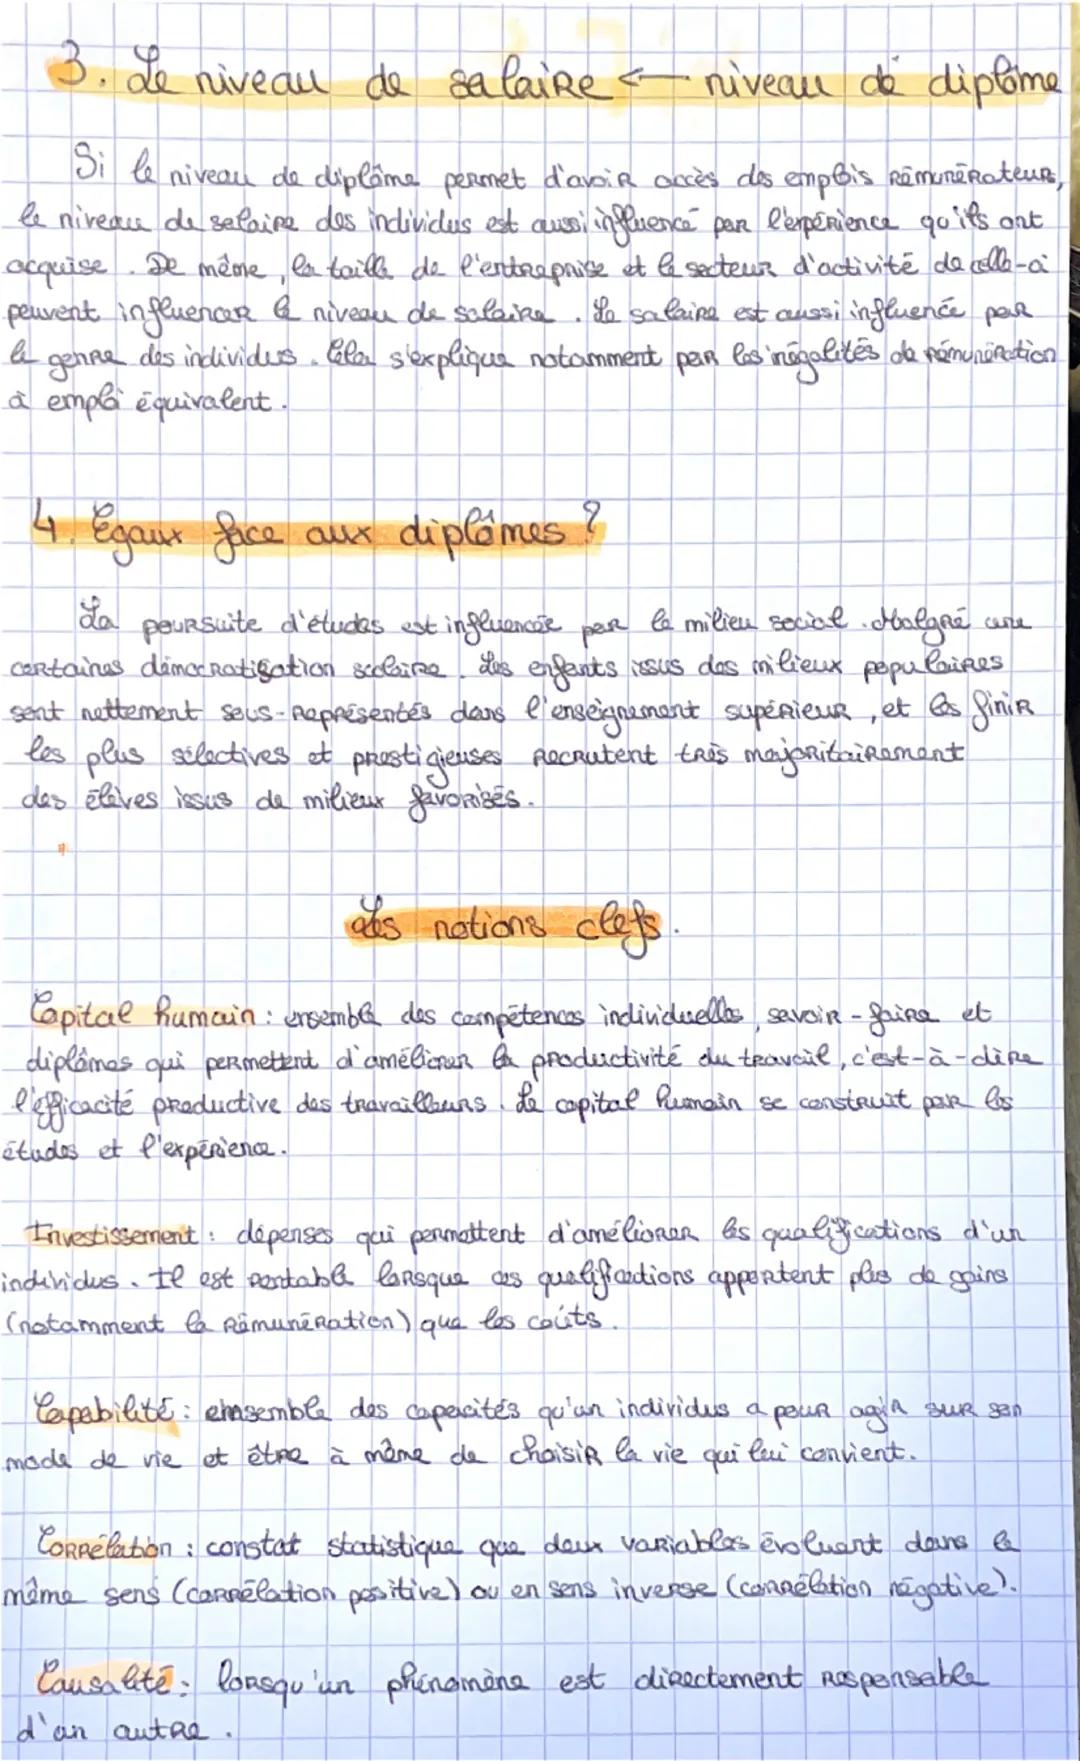 3. Le niveau de salaire ← niveau de diplôme
Si le niveau de diplôme permet d'avoir accès des emplois rémunérateurs,
le niveau de salaire des individus est aussi influencé par l'expérience qu'ils ont
acquise. De même, la taille de l'entreprise et le secteur d'activité de celle-ci
peuvent influencer le niveau de salaire. Le salaire est aussi influencé par
le genre des individus. Cela s'explique notamment par les inégalités de rémunération
à emploi équivalent.
4. Egaux face aux diplômes ?
La poursuite d'études est influencée par le milieu social. Malgré une
certaines démocratisation scolaire. Les enfants issus des milieux populaires
sont nettement sous-représentés dans l'enseignement supérieur, et les finir
les plus sélectives et prestigieuses recrutent très majoritairement
des élèves issus de milieux favorisés.
Les notions clefs.
Capital humain : ensemble des compétences individuelles, savoir-faire et
diplômes qui permettent d'améliorer la productivité du travail, c'est-à-dire
l'efficacité productive des travailleurs. Le capital humain se construit par les
études et l'expérience.
Investissement : dépenses qui permettent d'améliorer les qualifications d'un
individus. Il est rentable lorsque ces qualifications apportent plus de gains
(notamment la rémunération) que les coûts.
Capabilité : ensemble des capacités qu'un individus a pour agir sur son
mode de vie et être à même de choisir la vie qui lui convient.
Corrélation : constat statistique que deux variables évoluent dans le
même sens (corrélation positive) ou en sens inverse (corrélation négative).
Causalité : lorsqu'un phénomène est directement responsable
d'un autre.